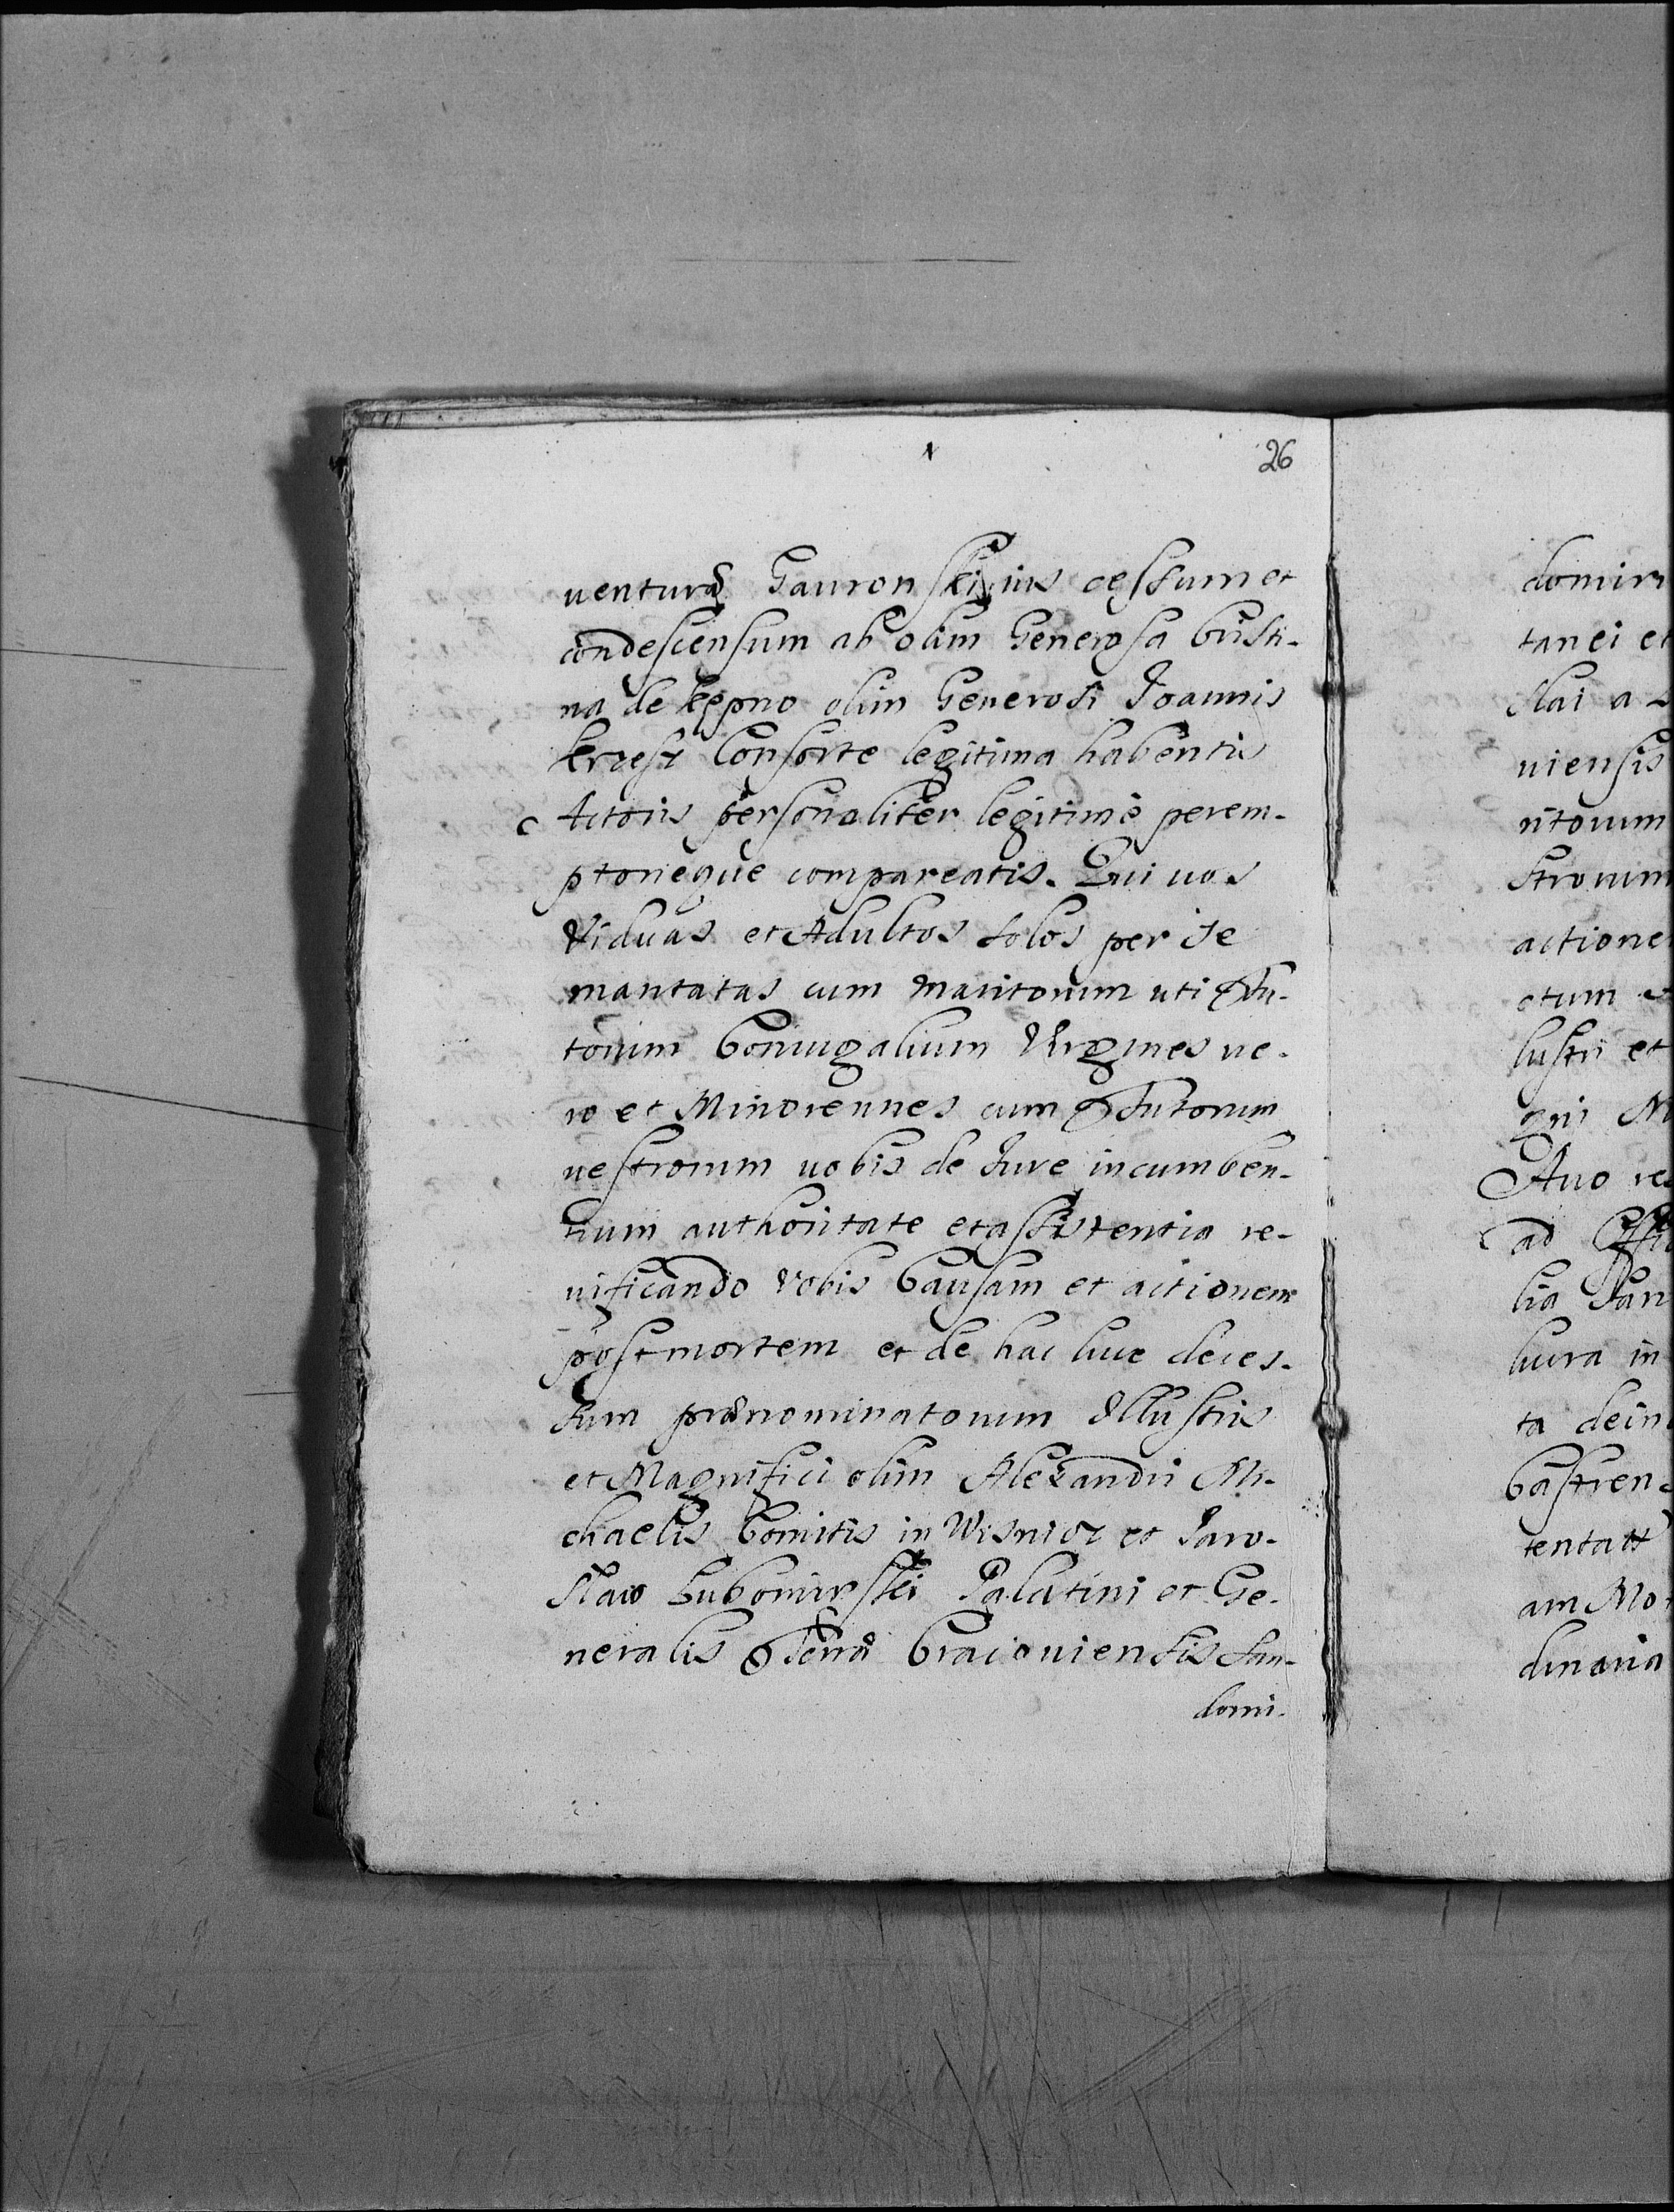 26
venturæ Gauronski ius cessum et
condescensum ab olim Generosa Cristi-
na de Kępno olim Generosi Joannis
Krzesz Consorte legitima habentis
Actoris personaliter legitime perem-
ptorieque compareatis. Qui vos
Viduas et Adultos solos per se
maritatas cum maritorum uti Tu-
torum Coniugalium Virgines ve-
ro et Minorennes cum Tutorum
vestrorum vobis de Jure incumben-
tium authoritate et assistentia re-
vificando vobis Causam et actionem
post mortem et de hac luce deces-
sum prænominatorum Illustris
et Magnifici olim Alexandri Mi-
chaelis Comitis in Wisnicz et Jaro-
slaw Lubomirski Palatini et Ge-
neralis Terræ Cracoviensis San-
domi-
domir
tanei et
slai a
viensis
ritorum
strorum
actione
ctum
lustri et
gni M
Avo re
ad
lia
hura in
ta dein
Castren
tentatt
am Mo
dinaria